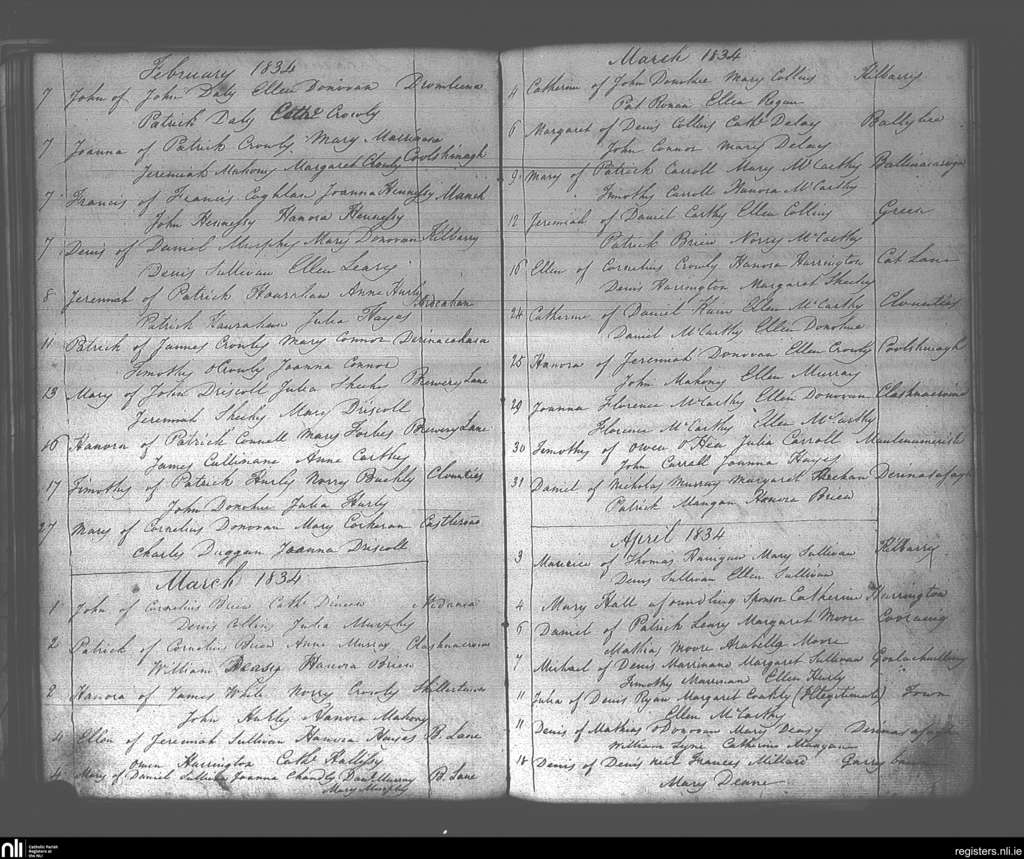 February 1834
7 John of John Daly Ellen Donovan
Patrick Daly Cathe Crowly
7 Joanna of Patrick Crowly Mary Marrinane
Jeremiah Mahony Margaret Crowly Coolshinagh
7 Francis of Francis Coghlan Joanna Hennesy Manch
John Hennesy Hanora Hennesy
7 Denis of Daniel Murphy Mary Donovan Kilbarry
Denis Sullivan Ellen Leary
8 Jeremiah of Patrick Hourahan Anne Hurly
Patrick Hourahan Julia Hayes
11 Patrick of James Crowly Mary Connor Derinacahara
Timothy Crowly Joanna Connor
13 Mary of John Driscoll Julia Sheehy Brewery Lane
Jeremiah Sheehy Mary Driscoll
16 Hanora of Patrick Connell Mary Forbes Brewery Lane
James Cullinane Anne Carthy
17 Timothy of Patrick Hurly Norry Buckly Clounties
John Donohue Julia Hurly
27 Mary of Cornelius Donovan Mary Corkeran
Charles Duggan Joanna Driscoll
March 1834
1 John of Cornelius Brien Cathe Dineen
Denis Collins Julia Murphy
2 Patrick of Cornelius Brien Anne Murray Clashnacrona
William Deasy Hanora Brien
2 Hanora of James White Norry Crowly
John Hurly Hanora Mahony
4 Ellen of Jeremiah Sullivan Hanora Hayes B. Lane
Owen Harrington Cathe
4 Mary of Daniel Sullivan Joanna Danl Murray B. Lane
Mary Murphy
March 1834
4 Catherine of John Donohue Mary Collins Kilbarry
Pat Ronan Ellen Regan
6 Margaret of Denis Collins Cathe Delay
John Connor Mary Delay
9 Mary of Patrick Carroll Mary McCarthy Ballinacarriga
Timothy Carroll Hanora McCarthy
12 Jeremiah of Daniel Carthy Ellen Collins Green
Patrick Brien Norry McCarthy
16 Ellen of Cornelius Crowly Hanora Harrington Cat Lane
Denis Harrington Margaret Sheehy
24 Catherine of Daniel Ellen McCarthy Clounties
Daniel McCarthy Ellen Donohue
25 Hanora of Jeremiah Donovan Ellen Crowly Coolshinagh
John Mahony Ellen Murray
29 Joanna Florence McCarthy Ellen Donovan Clashnacrona
Florence McCarthy Ellen McCarthy
30 Timothy of Owen O'Hea Julia Carroll
John Carroll Joanna Hayes
31 Daniel of Nicholas Murray Margaret Sheehan Derinasafagh
Patrick Mangan Honora Brien
April 1834
3 Maurice of Thomas Hanigan Mary Sullivan Kilbarry
Denis Sullivan Ellen Sullivan
4 Mary Hall a foundling Sponsor Catherine Harrington
6 Daniel of Patrick Leary Margaret Moore
Mathias Moore Arabella Moore
7 Michael of Denis Marrinane Margaret Sullivan
Timothy Marrinan Ellen Hurly
11 Julia of Denis Ryan Margaret Coakly (Illegitimate) Town
Ellen McCarthy
11 Denis of Mathias O'Donovan Mary Deasy Derinasafagh
William Lyne Catherine Mangan
18 Denis of Denis Frances Millard
Mary Deane
nli
Catholic Parish
Registers at
the NLI
registers.nli.ie